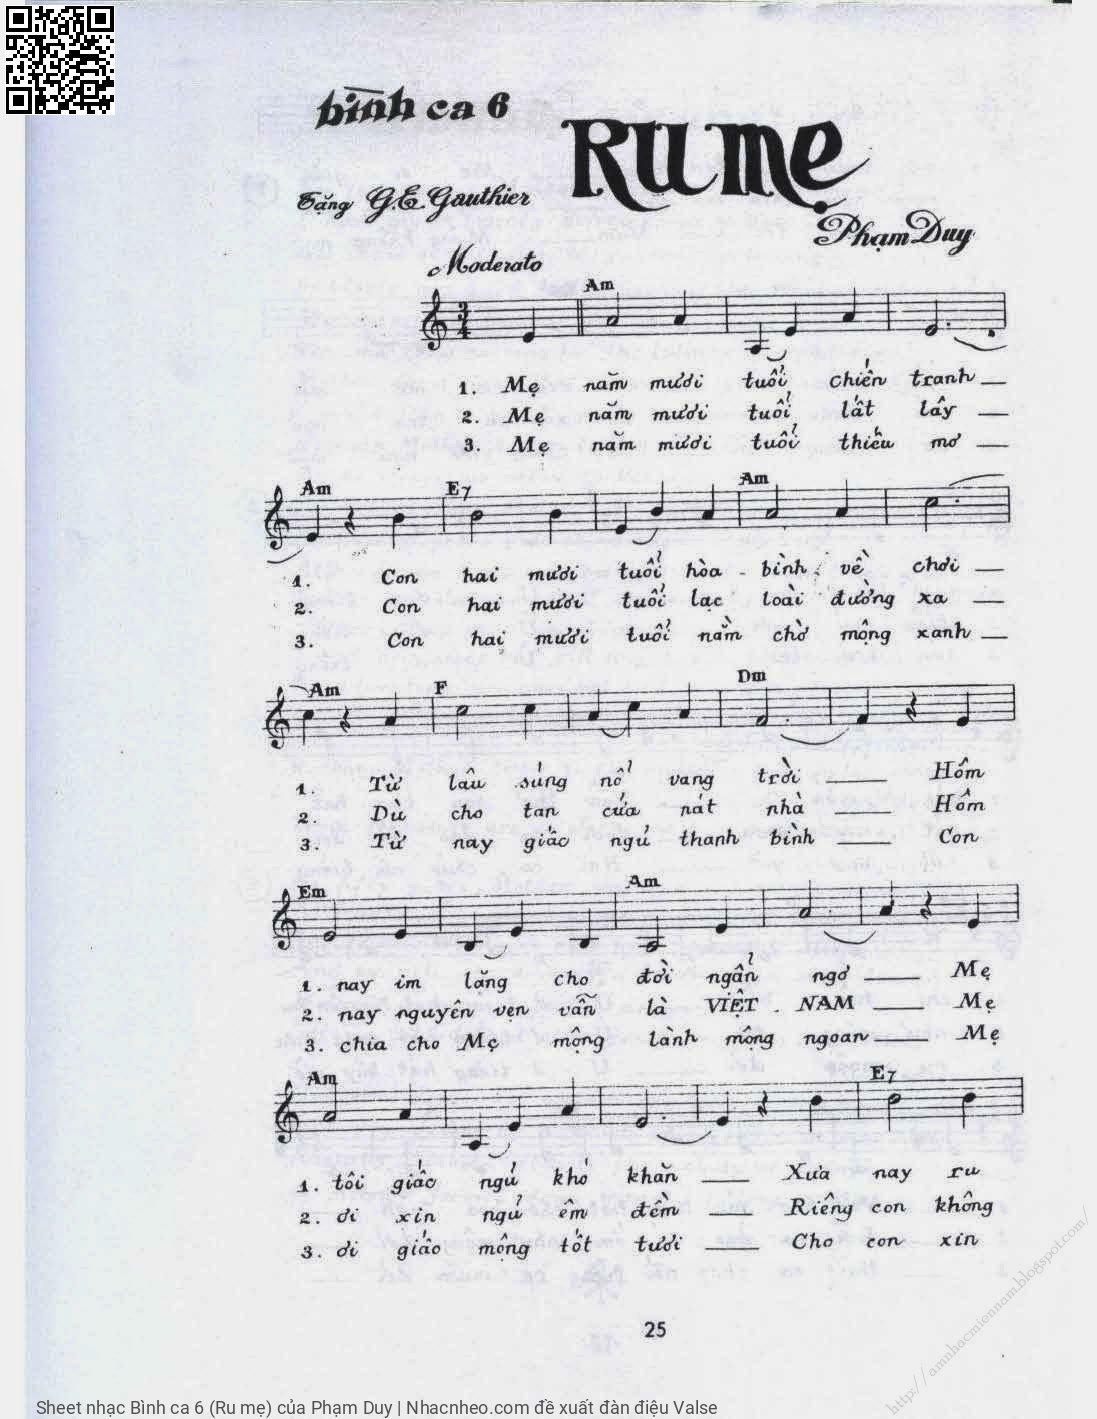 bình ca 6
RU MẸ
Tặng G.E. Gauthier
Phạm Duy
Moderato
Am
1. Mẹ năm mươi tuổi chiến tranh
2. Mẹ năm mươi tuổi lất lây
3. Mẹ năm mươi tuổi thiếu mơ
Am E7 Am
1. Con hai mươi tuổi hòa - bình về chơi
2. Con hai mươi tuổi lạc loài đường xa
3. Con hai mươi tuổi nằm chờ mộng xanh
Am F Dm
1. Từ lâu súng nổ vang trời Hôm
2. Dù cho tan cửa nát nhà Hôm
3. Từ nay giấc ngủ thanh bình Con
Em Am
1. nay im lặng cho đời ngẩn ngơ Mẹ
2. nay nguyên vẹn vẫn là VIỆT NAM Mẹ
3. chia cho Mẹ mộng lành mộng ngoan Mẹ
Am E7
1. tôi giấc ngủ khó khăn Xưa nay ru
2. ơi xin ngủ êm đềm Riêng con không
3. ơi giấc mộng tốt tươi Cho con xin
25
http://amnhacmiennam.blogspot.com/
Sheet nhạc Bình ca 6 (Ru mẹ) của Phạm Duy | Nhacnheo.com đề xuất đàn điệu Valse